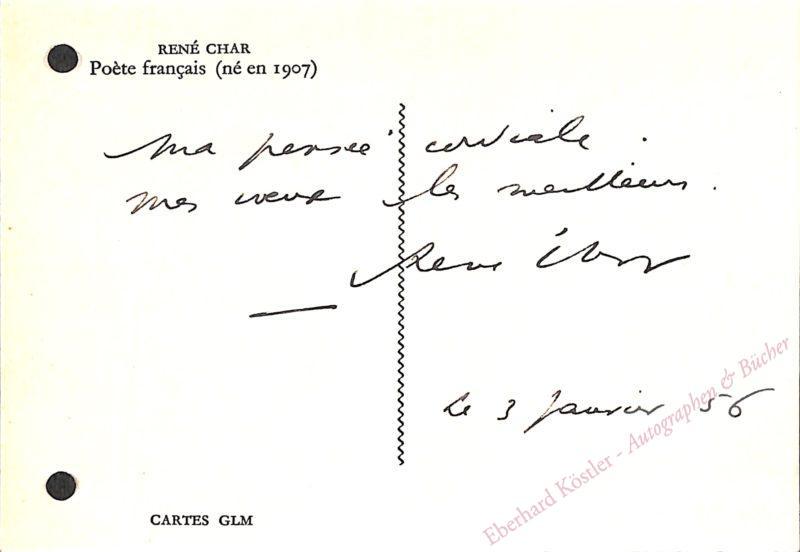 RENÉ CHAR
Poète français (né en 1907)
Ma pensée cordiale.
mes vœux les meilleurs.
René Char
Le 3 Janvier 56
CARTES GLM
Eberhard Köstler - Autographen & Bücher